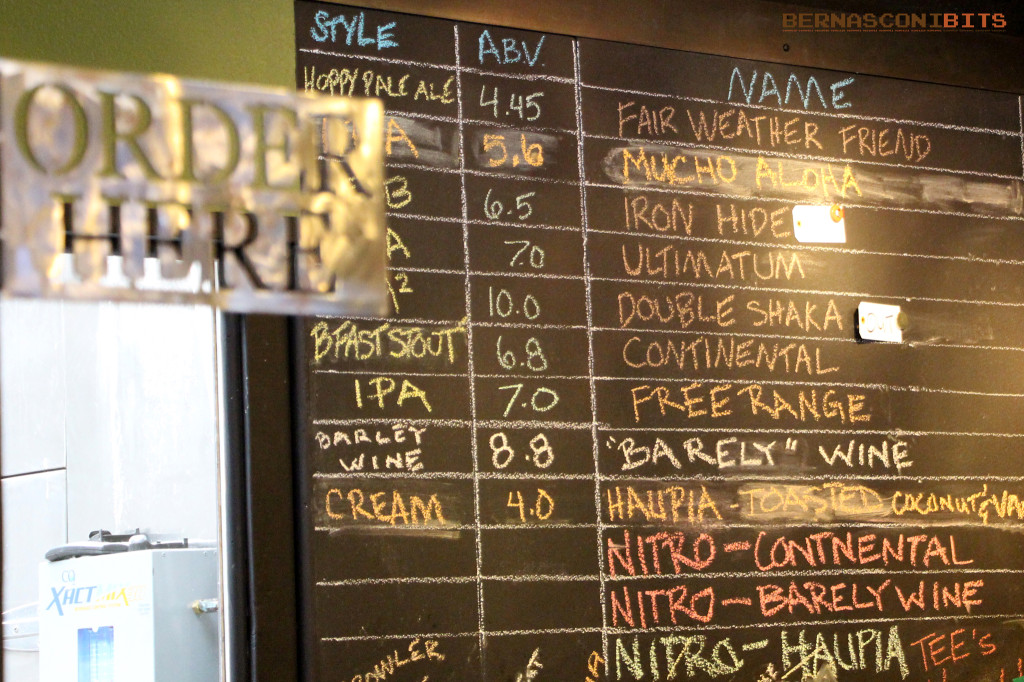 BERNASCONIBITS
ORDER
HERE
STYLE ABV NAME
HOPPY PALE ALE 4.45 FAIR WEATHER FRIEND
A 5.6 MUCHO ALOHA
B 6.5 IRON HIDE
A 7.0 ULTIMATUM
A² 10.0 DOUBLE SHAKA
B'FAST STOUT 6.8 CONTINENTAL
IPA 7.0 FREE RANGE
BARLEY WINE 8.8 "BARELY" WINE
CREAM 4.0 HAUPIA - TOASTED COCONUT &
NITRO - CONTNENTAL
NITRO - BARELY WINE
NITRO - HAUPIA TEE'S